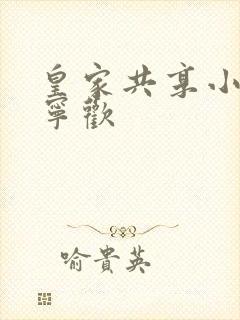 皇家共享小
寧歡
喻貴英